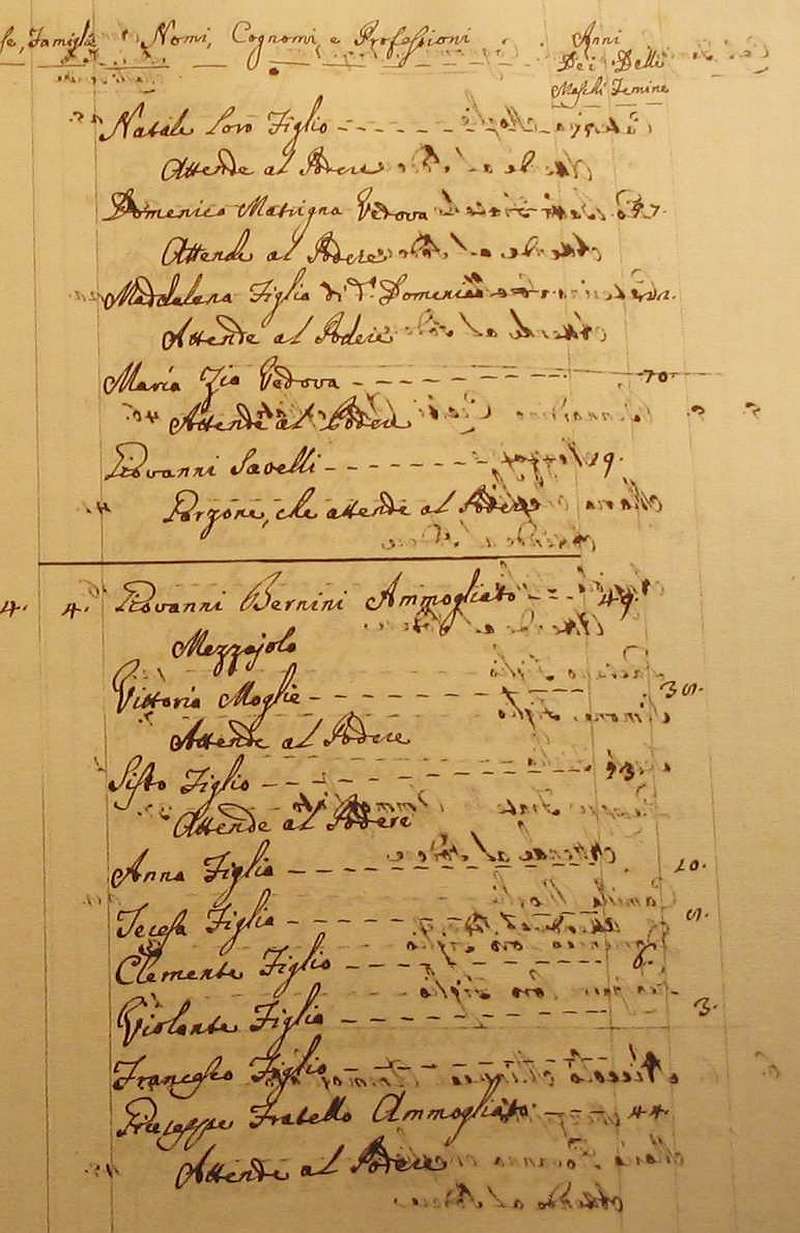 se, Famiglie Nomi, Cognomi, e Professioni Anni
Dei Delle
Maschi Femine
Natale Loro Figlio
Attende al Podere
Domenica Matrigna Vedova 47.
Attende al Podere
Maddalena Figlia di d.a Domenica
Attende al Podere
Maria Zia Vedova 70.
Attende al Podere
Giovanni Savelli 19.
Garzone, che attende al Podere
4. 4. Giovanni Bernini Ammogliato 49.
Mezzajolo
Vittoria Moglie 35.
Attende al Podere
Sisto Figlio 13.
Attende al Podere
Anna Figlia 10.
Teresa Figlia
Clemente Figlio 6.
Violante Figlia 3.
Francesco Figlio
Giuseppe Fratello Ammogliato 44.
Attende al Podere